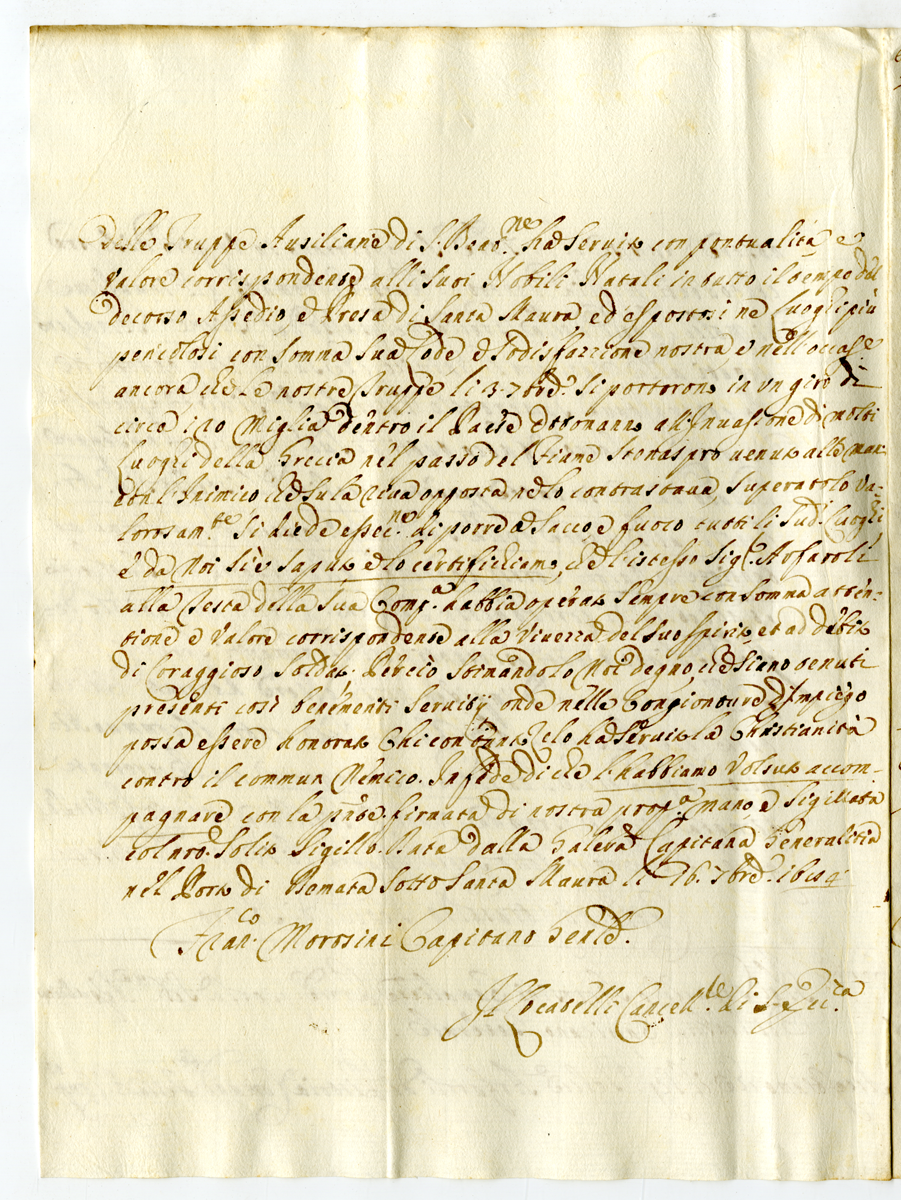 delle Truppe Ausiliarie di S. Beat.ne hà Servito con pontualità, e
Valore corrispondente alli suoi Nobili Natali in tutto il tempo del
decorso Assedio, e Presa di Santa Maura ed espostosi ne Luoghi più
pericolosi con somma sua Lode e sodisfazzione nostra, e nell'occas.e
ancora che le nostre Truppe li 3. 7bre. si portorono in un giro di
circa 120 Miglia dentro il Paese Ottomanno all'Invasione di molti
Luoghi della Grecia nel passo del fiume
l'Inimico che su la riva opposta nelo contrastava, superatolo Va-
lorosam.te si diede essec.ne di porre à Sacco, e fuoco tutti li sud.i Luoghi
è da Noi si è saputo e lo certifichiamo, che l'istesso Sig.r
alla testa della sua Comp.a habbia operato sempre con somma atten-
tione e Valore corrispondente alla Vivezza del suo spirito, et ad debito
di Coraggioso Soldato. Perciò stimandolo Noi degno, che siano tenuti
presenti così benemeriti Servitij onde nelle Congionture d'Impiego
possa essere honorato Chi con tanto Zelo hà servito la Christianità
contro il commun Nemico. In fede di che l'habbiamo Volsuto accom-
pagnare con la pnte. firmata di nostra prop.a mano, e Sigillata
col nro. solito Sigillo. Data dalla Galera Capitana Generalitia
nel Porto di Demata sotto Santa Maura li 16. 7bre. 1684
Fran.co Morosini Capitano Genle.
Cancell.re di S.